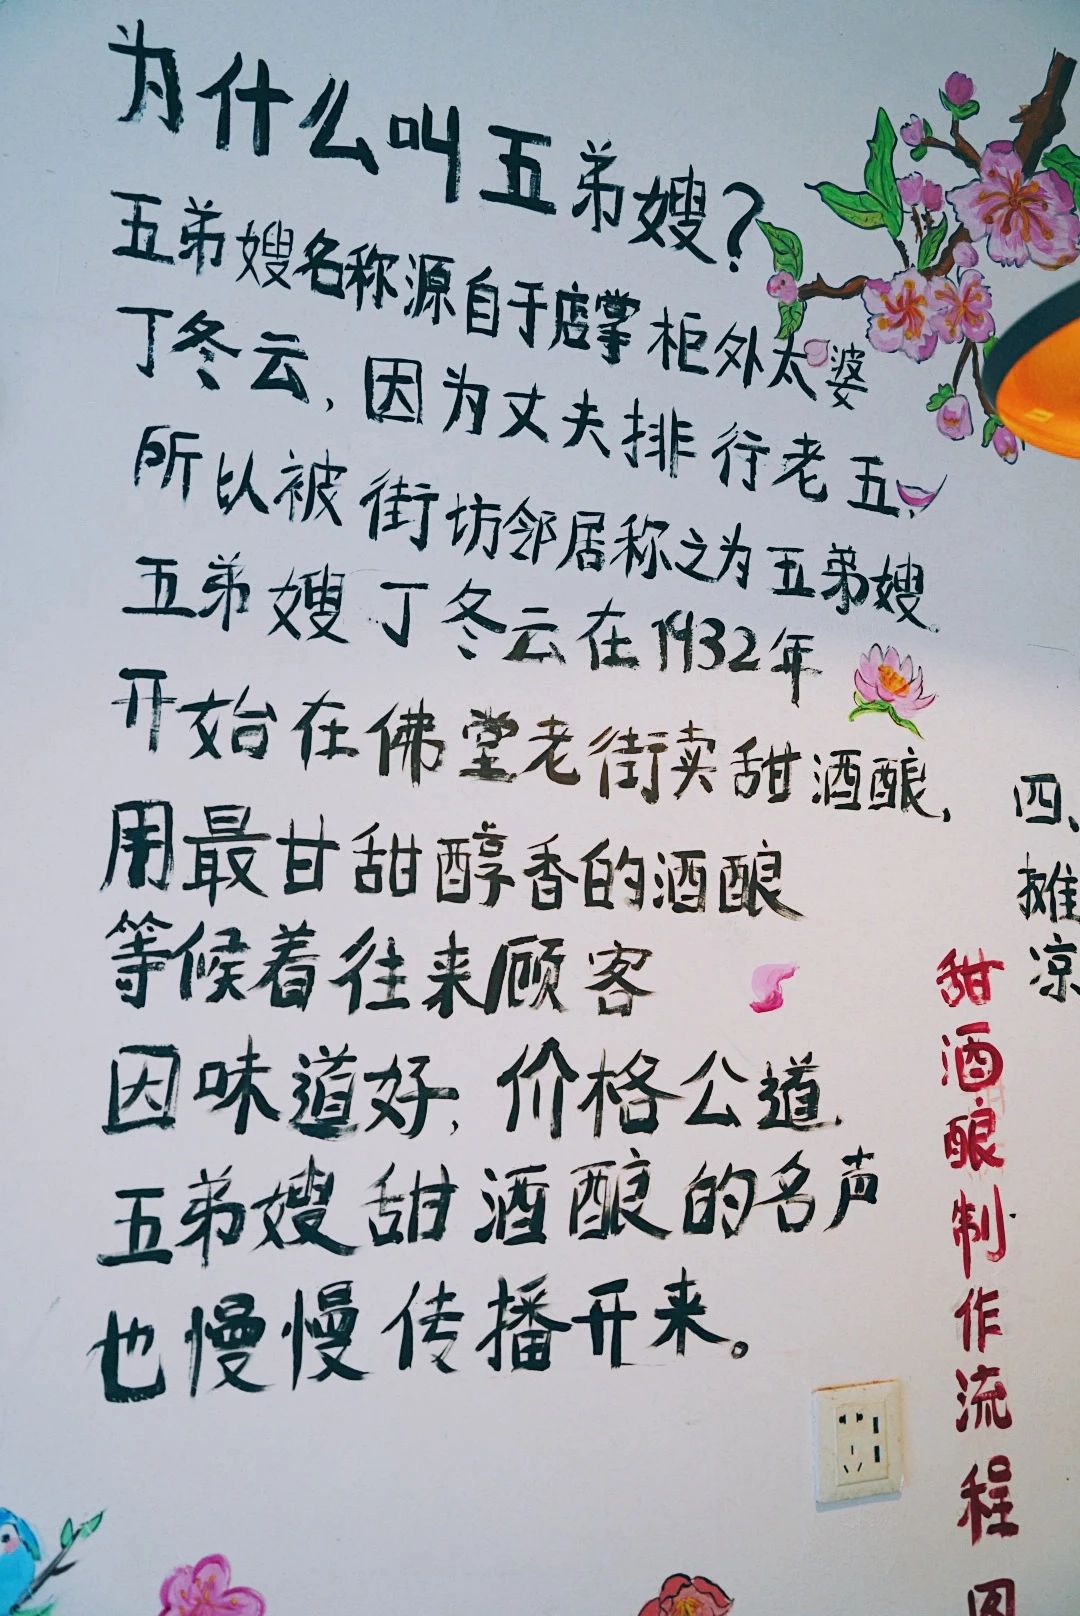 为什么叫五弟嫂?
五弟嫂名称源自于店掌柜外太婆
丁冬云,因为丈夫排行老五,
所以被街坊邻居称之为五弟嫂。
五弟嫂丁冬云在1932年
开始在佛堂老街卖甜酒酿,
用最甘甜醇香的酒酿
等候着往来顾客
因味道好,价格公道
五弟嫂甜酒酿的名声
也慢慢传播开来。
四、
摊
凉
甜酒酿制作流程